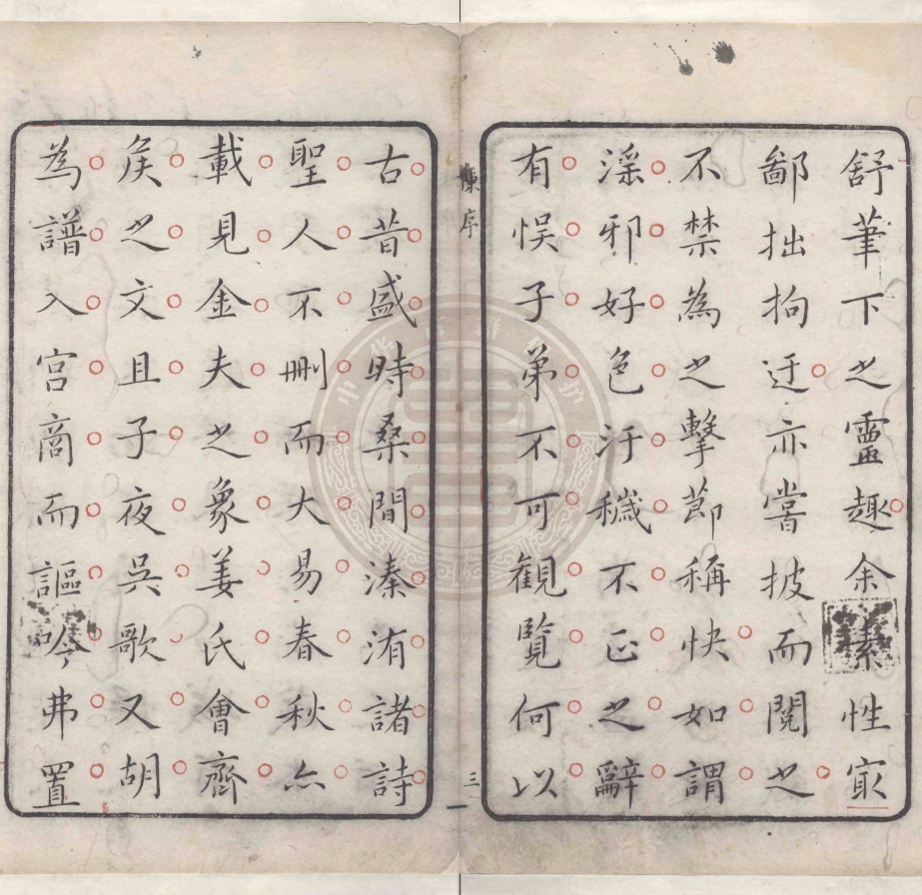 舒筆下之靈趣余素性寂
鄙拙拘迂亦嘗披而閱之
不禁為之擊節稱快如謂
淫邪好色汙穢不正之辭
有悞子弟不可觀覽何以
陳序
三
古昔盛時桑間溱洧諸詩
聖人不刪而大易春秋亦
載見金夫之象姜氏會齊
侯之文且子夜吳歌又胡
為譜入宮商而謳吟弗置